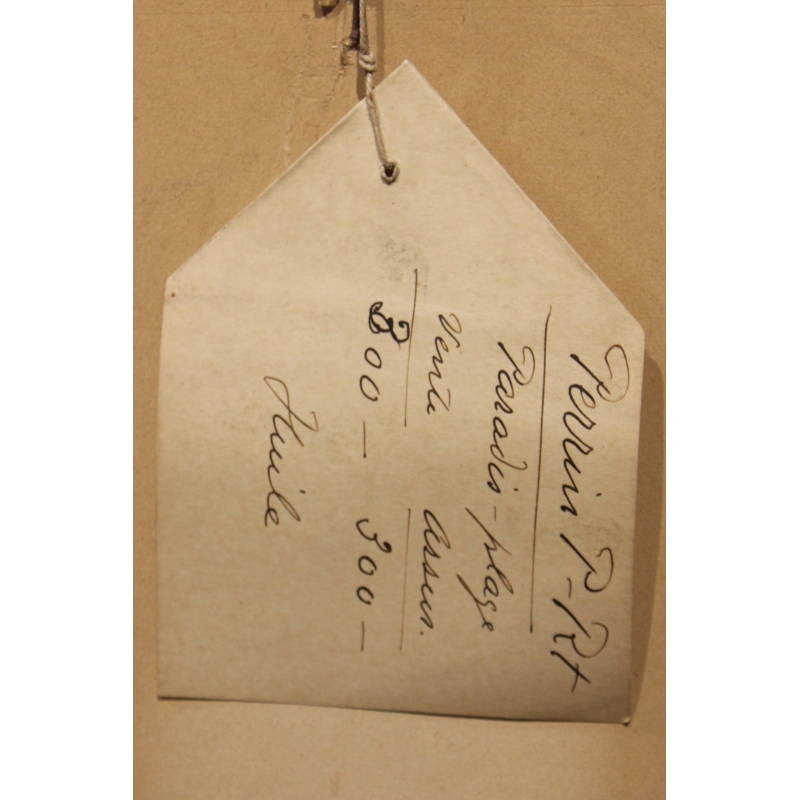 Perrin P-Rt
Paradis-plage
Vente Assur.
300 — 300 —
Huile